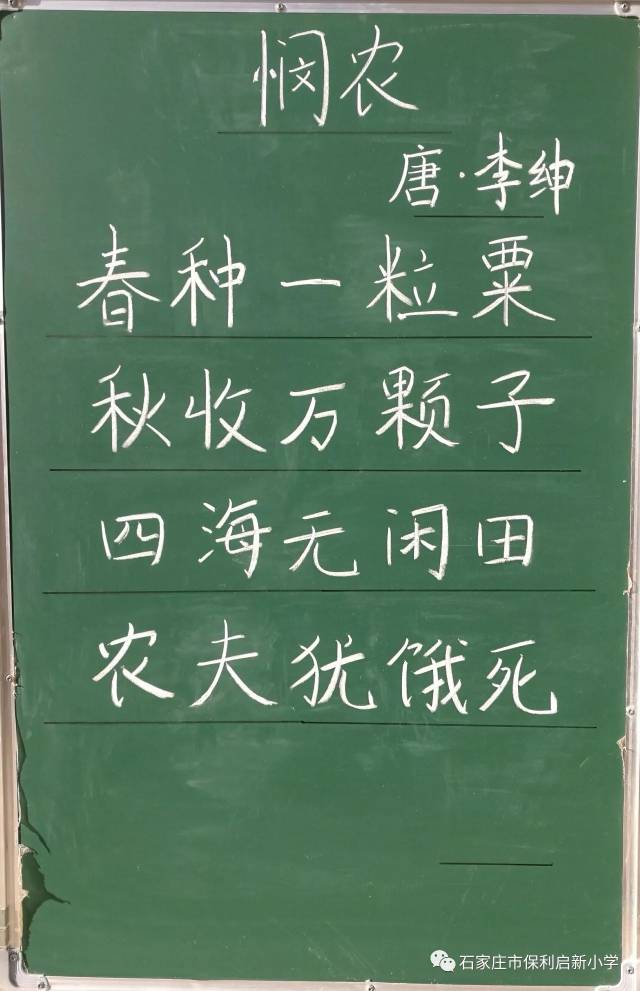 悯农
唐·李绅
春种一粒粟
秋收万颗子
四海无闲田
农夫犹饿死
石家庄市保利启新小学